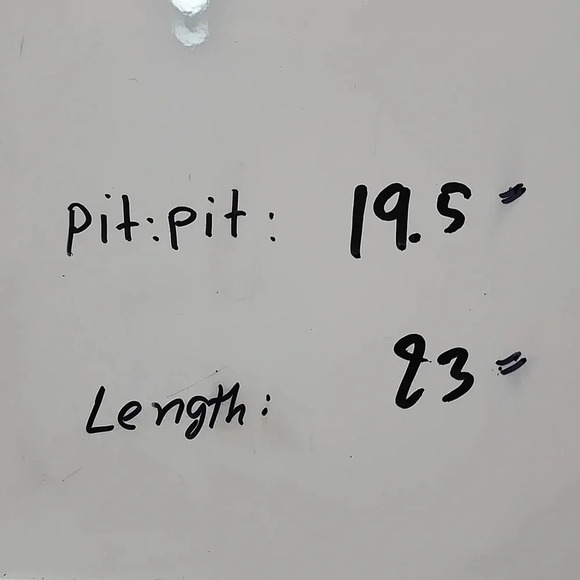 pit:pit: 19.5"
Length: 23"